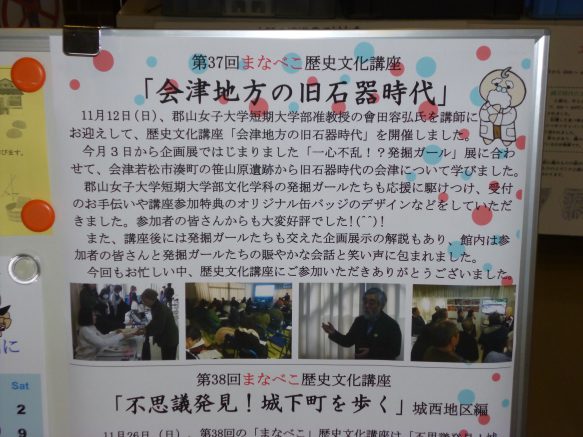 第37回まなべこ歴史文化講座
「会津地方の旧石器時代」
11月12日(日)、郡山女子大学短期大学部准教授の會田容弘氏を講師に
お迎えして、歴史文化講座「会津地方の旧石器時代」を開催しました。
今月3日から企画展ではじまりました「一心不乱!?発掘ガール」展に合わ
せて、会津若松市湊町の笹山原遺跡から旧石器時代の会津について学びました。
郡山女子大学短期大学部文化学科の発掘ガールたちも応援に駆けつけ、受付
のお手伝いや講座参加特典のオリジナル缶バッジのデザインなどをしていただ
きました。参加者の皆さんからも大変好評でした!(^^)!
また、講座後には発掘ガールたちも交えた企画展示の解説もあり、館内は参
加者の皆さんと発掘ガールたちの賑やかな会話と笑い声に包まれました。
今回もお忙しい中、歴史文化講座にご参加いただきありがとうございました。
第38回まなべこ歴史文化講座
「不思議発見!城下町を歩く」城西地区編
Sat
2
9
に